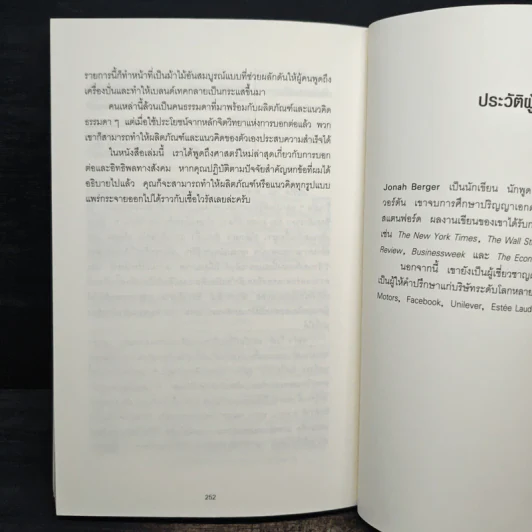 รายการนี้ก็ทำหน้าที่เป็นม้าไม้อันสมบูรณ์แบบที่ช่วยผลักดันให้ผู้คนพูดถึง
เครื่องปั่นและทำให้เบลนด์เทคกลายเป็นกระแสขึ้นมา
คนเหล่านี้ล้วนเป็นคนธรรมดาที่มาพร้อมกับผลิตภัณฑ์และแนวคิด
ธรรมดา ๆ แต่เมื่อใช้ประโยชน์จากหลักจิตวิทยาแห่งการบอกต่อแล้ว พวก
เขาก็สามารถทำให้ผลิตภัณฑ์และแนวคิดของตัวเองประสบความสำเร็จได้
ในหนังสือเล่มนี้ เราได้พูดถึงศาสตร์ใหม่ล่าสุดเกี่ยวกับการบอก
ต่อและอิทธิพลทางสังคม หากคุณปฏิบัติตามปัจจัยสำคัญหกข้อที่ผมได้
อธิบายไปแล้ว คุณก็จะสามารถทำให้ผลิตภัณฑ์หรือแนวคิดทุกรูปแบบ
แพร่กระจายออกไปได้ราวกับเชื้อไวรัสเลยล่ะครับ
252
ประวัติผู้
Jonah Berger เป็นนักเขียน นักพูด
วอร์ตัน เขาจบการศึกษาปริญญาเอก
สแตนฟอร์ด ผลงานเขียนของเขาได้รับ
เช่น The New York Times, The Wall St
Review, Businessweek และ The Econ
นอกจากนี้ เขายังเป็นผู้เชี่ยวชาญ
เป็นผู้ให้คำปรึกษาแก่บริษัทระดับโลกหลาย
Motors, Facebook, Unilever, Estée Laud